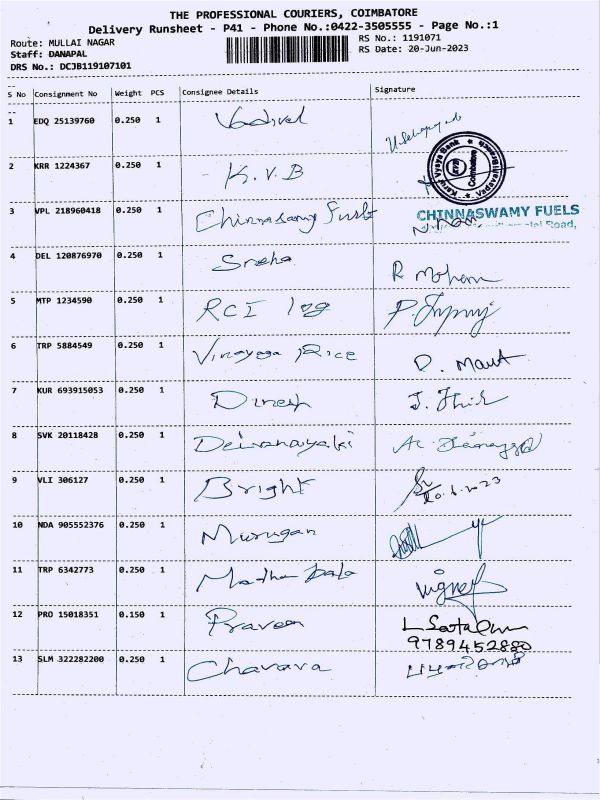 THE PROFESSIONAL COURIERS, COIMBATORE
Delivery Runsheet - P41 - Phone No.:0422-3505555 - Page No.:1
Route: MULLAI NAGAR RS No.: 1191071
Staff: DANAPAL RS Date: 20-Jun-2023
DRS No.: DCJB119107101
S No Consignment No Weight PCS Consignee Details Signature
1 EDQ 25139760 0.250 1 Vadivel
2 KRR 1224367 0.250 1 K.V.B
Karur Vysya Bank Vadavalli Branch KVB Coimbatore
3 VPL 218960418 0.250 1 Chinnasamy Fuels
CHINNASWAMY FUELS
Road,
4 DEL 120876970 0.250 1 Sneha R Mohan
5 MTP 1234590 0.250 1 RCI log
6 TRP 5884549 0.250 1 Vinayaga Rice
7 KUR 693915053 0.250 1 Dinesh
8 SVK 20118428 0.250 1 Deivanayaki
9 VLI 306127 0.250 1 Bright 20.6.2023
10 NDA 905552376 0.250 1 Murugan
11 TRP 6342773 0.250 1 Madhu Bala
12 PRO 15018351 0.150 1 Praveen
9789452880
13 SLM 322282200 0.250 1 Charava